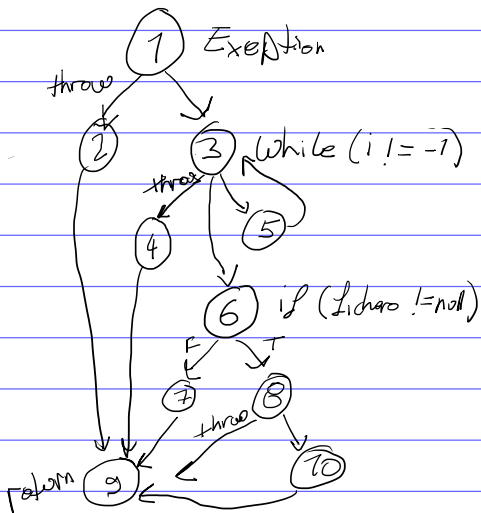 1 Exeption
throw
2 3 while (i != -1)
throw
4 5
6 if (fichero != null)
F T
7 8
throw
return 9 10